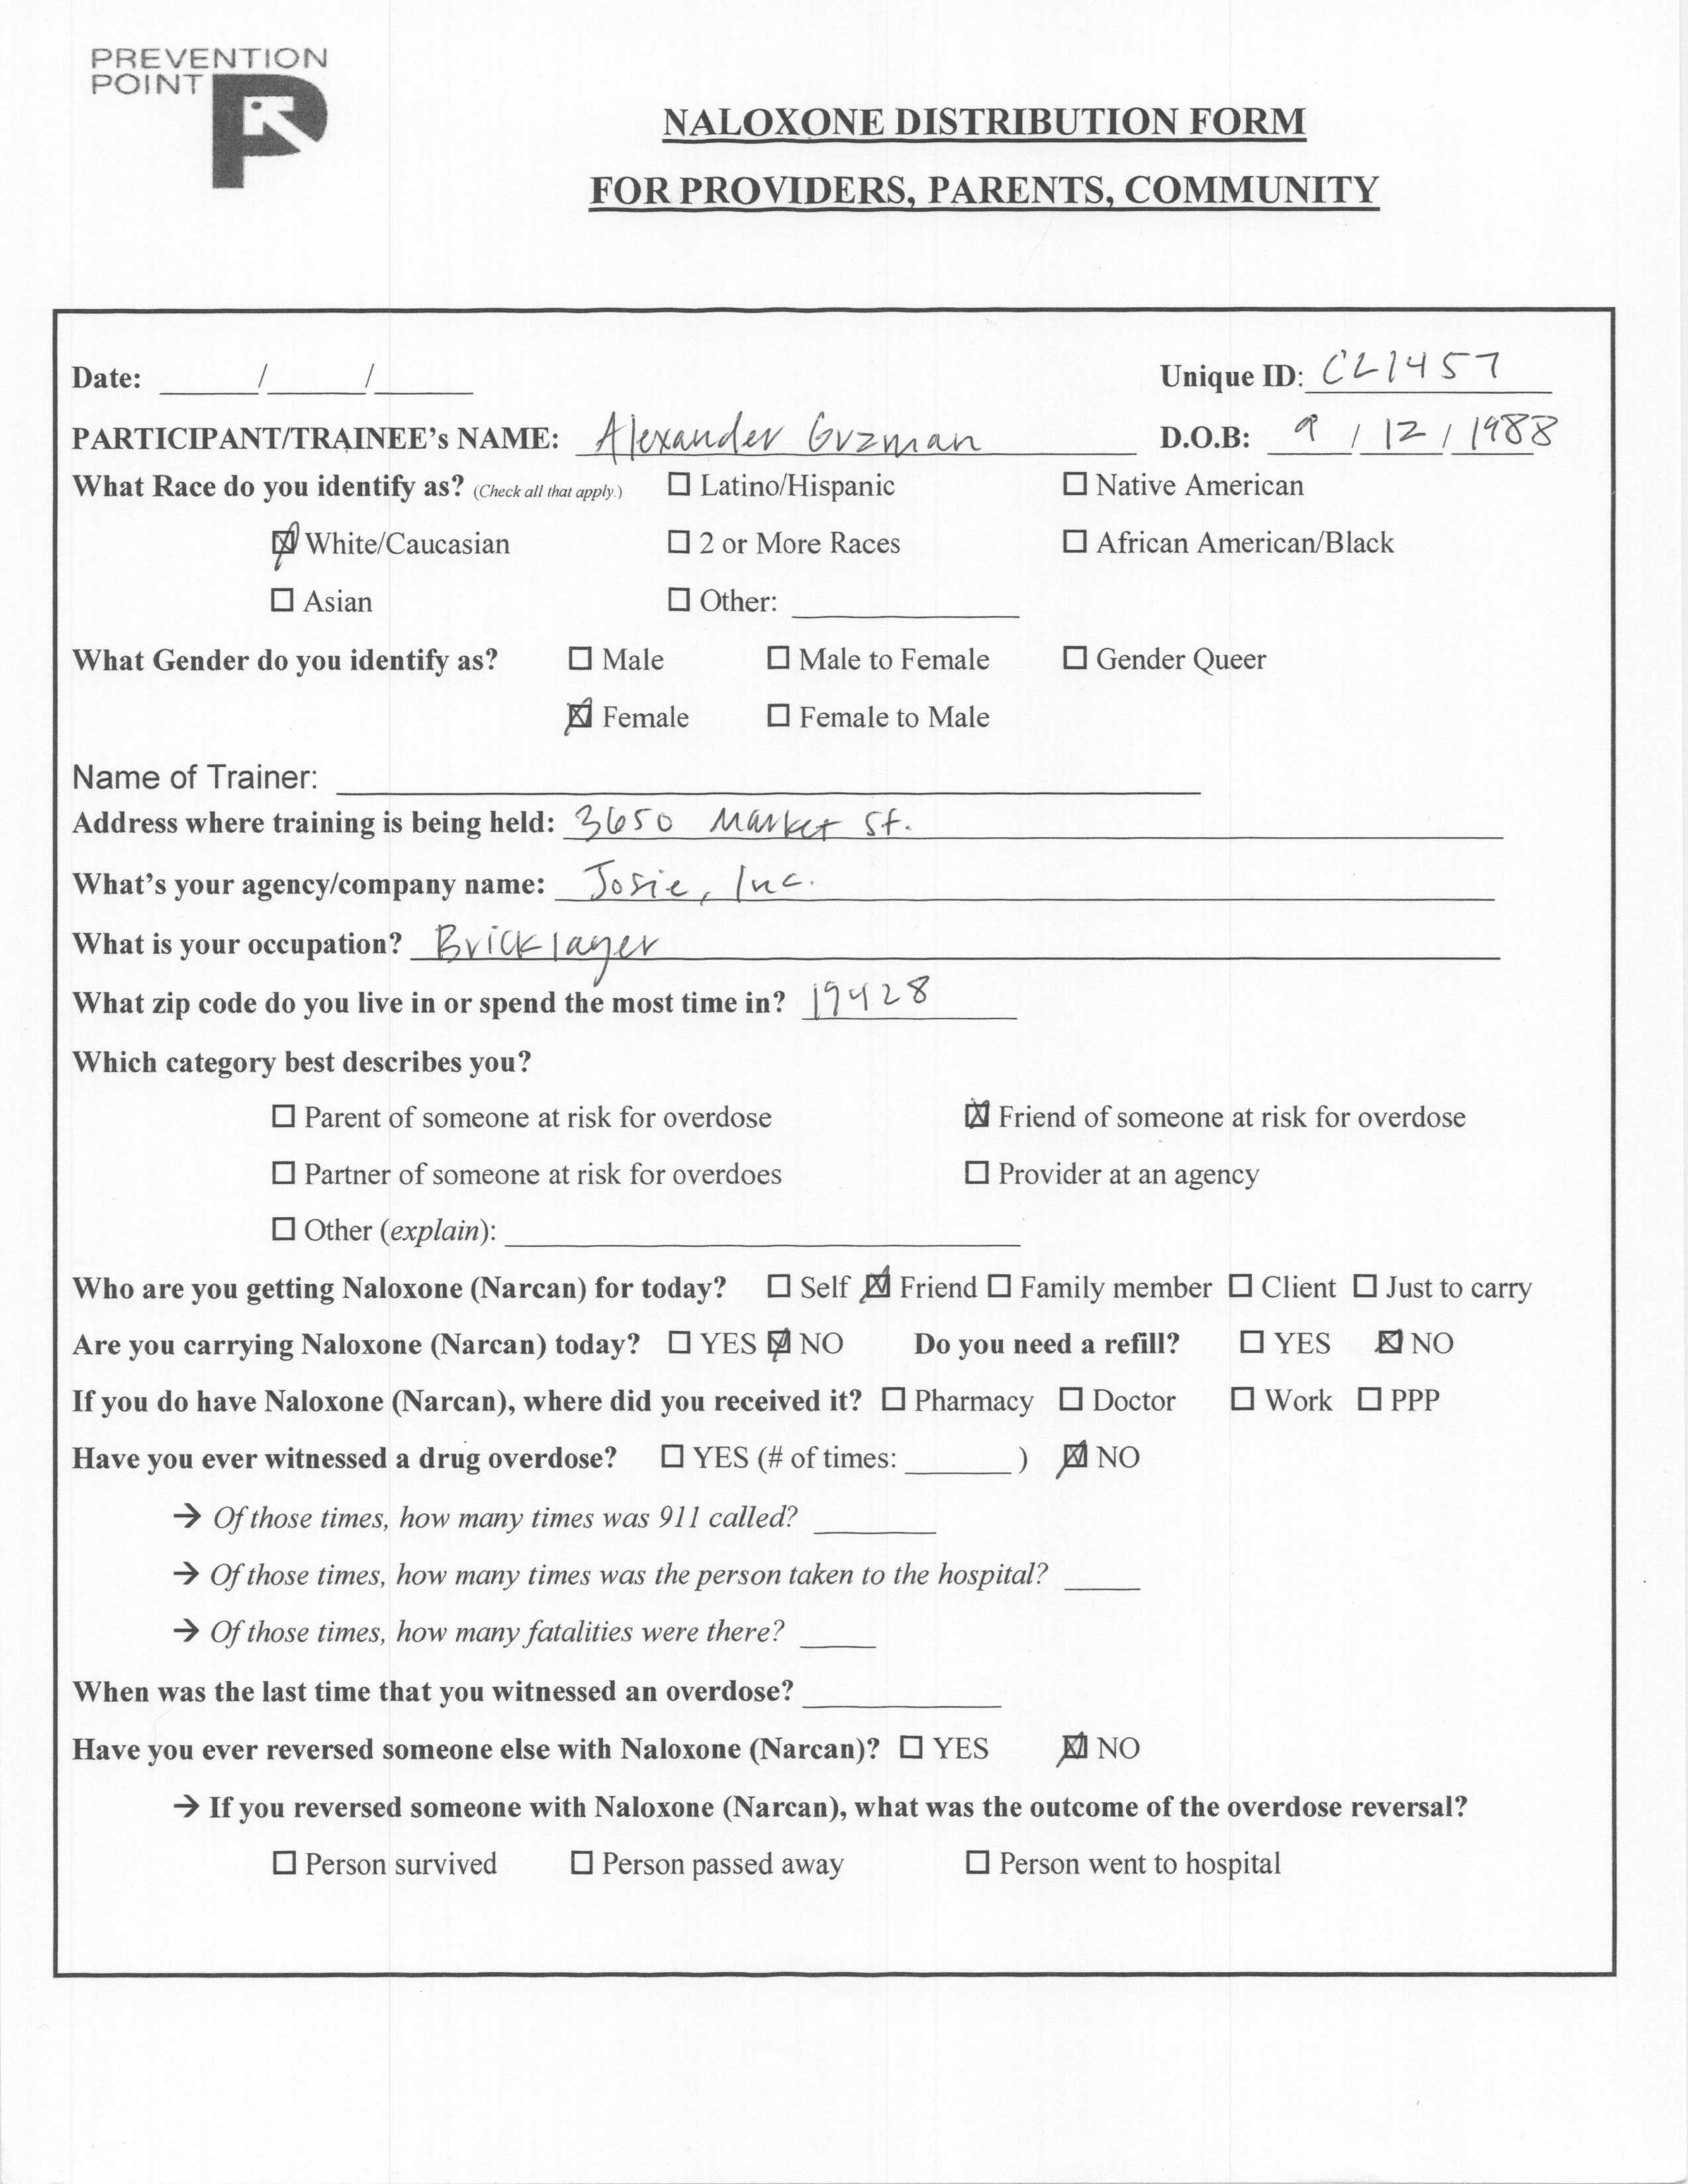 PREVENTION
POINT
NALOXONE DISTRIBUTION FORM
FOR PROVIDERS, PARENTS, COMMUNITY
Date: ______/______/______ Unique ID: CL1457
PARTICIPANT/TRAINEE's NAME: Alexander Guzman D.O.B: 9 / 12 / 1988
What Race do you identify as? (Check all that apply.) ☐ Latino/Hispanic ☐ Native American
☒ White/Caucasian ☐ 2 or More Races ☐ African American/Black
☐ Asian ☐ Other: ____________
What Gender do you identify as? ☐ Male ☐ Male to Female ☐ Gender Queer
☒ Female ☐ Female to Male
Name of Trainer: ____________
Address where training is being held: 3650 Market St.
What's your agency/company name: Josie, Inc.
What is your occupation? Bricklayer
What zip code do you live in or spend the most time in? 19428
Which category best describes you?
☐ Parent of someone at risk for overdose ☒ Friend of someone at risk for overdose
☐ Partner of someone at risk for overdoes ☐ Provider at an agency
☐ Other (explain): ____________
Who are you getting Naloxone (Narcan) for today? ☐ Self ☒ Friend ☐ Family member ☐ Client ☐ Just to carry
Are you carrying Naloxone (Narcan) today? ☐ YES ☒ NO Do you need a refill? ☐ YES ☒ NO
If you do have Naloxone (Narcan), where did you received it? ☐ Pharmacy ☐ Doctor ☐ Work ☐ PPP
Have you ever witnessed a drug overdose? ☐ YES (# of times: _______ ) ☒ NO
→ Of those times, how many times was 911 called? ________
→ Of those times, how many times was the person taken to the hospital? _____
→ Of those times, how many fatalities were there? _____
When was the last time that you witnessed an overdose? ____________
Have you ever reversed someone else with Naloxone (Narcan)? ☐ YES ☒ NO
→ If you reversed someone with Naloxone (Narcan), what was the outcome of the overdose reversal?
☐ Person survived ☐ Person passed away ☐ Person went to hospital